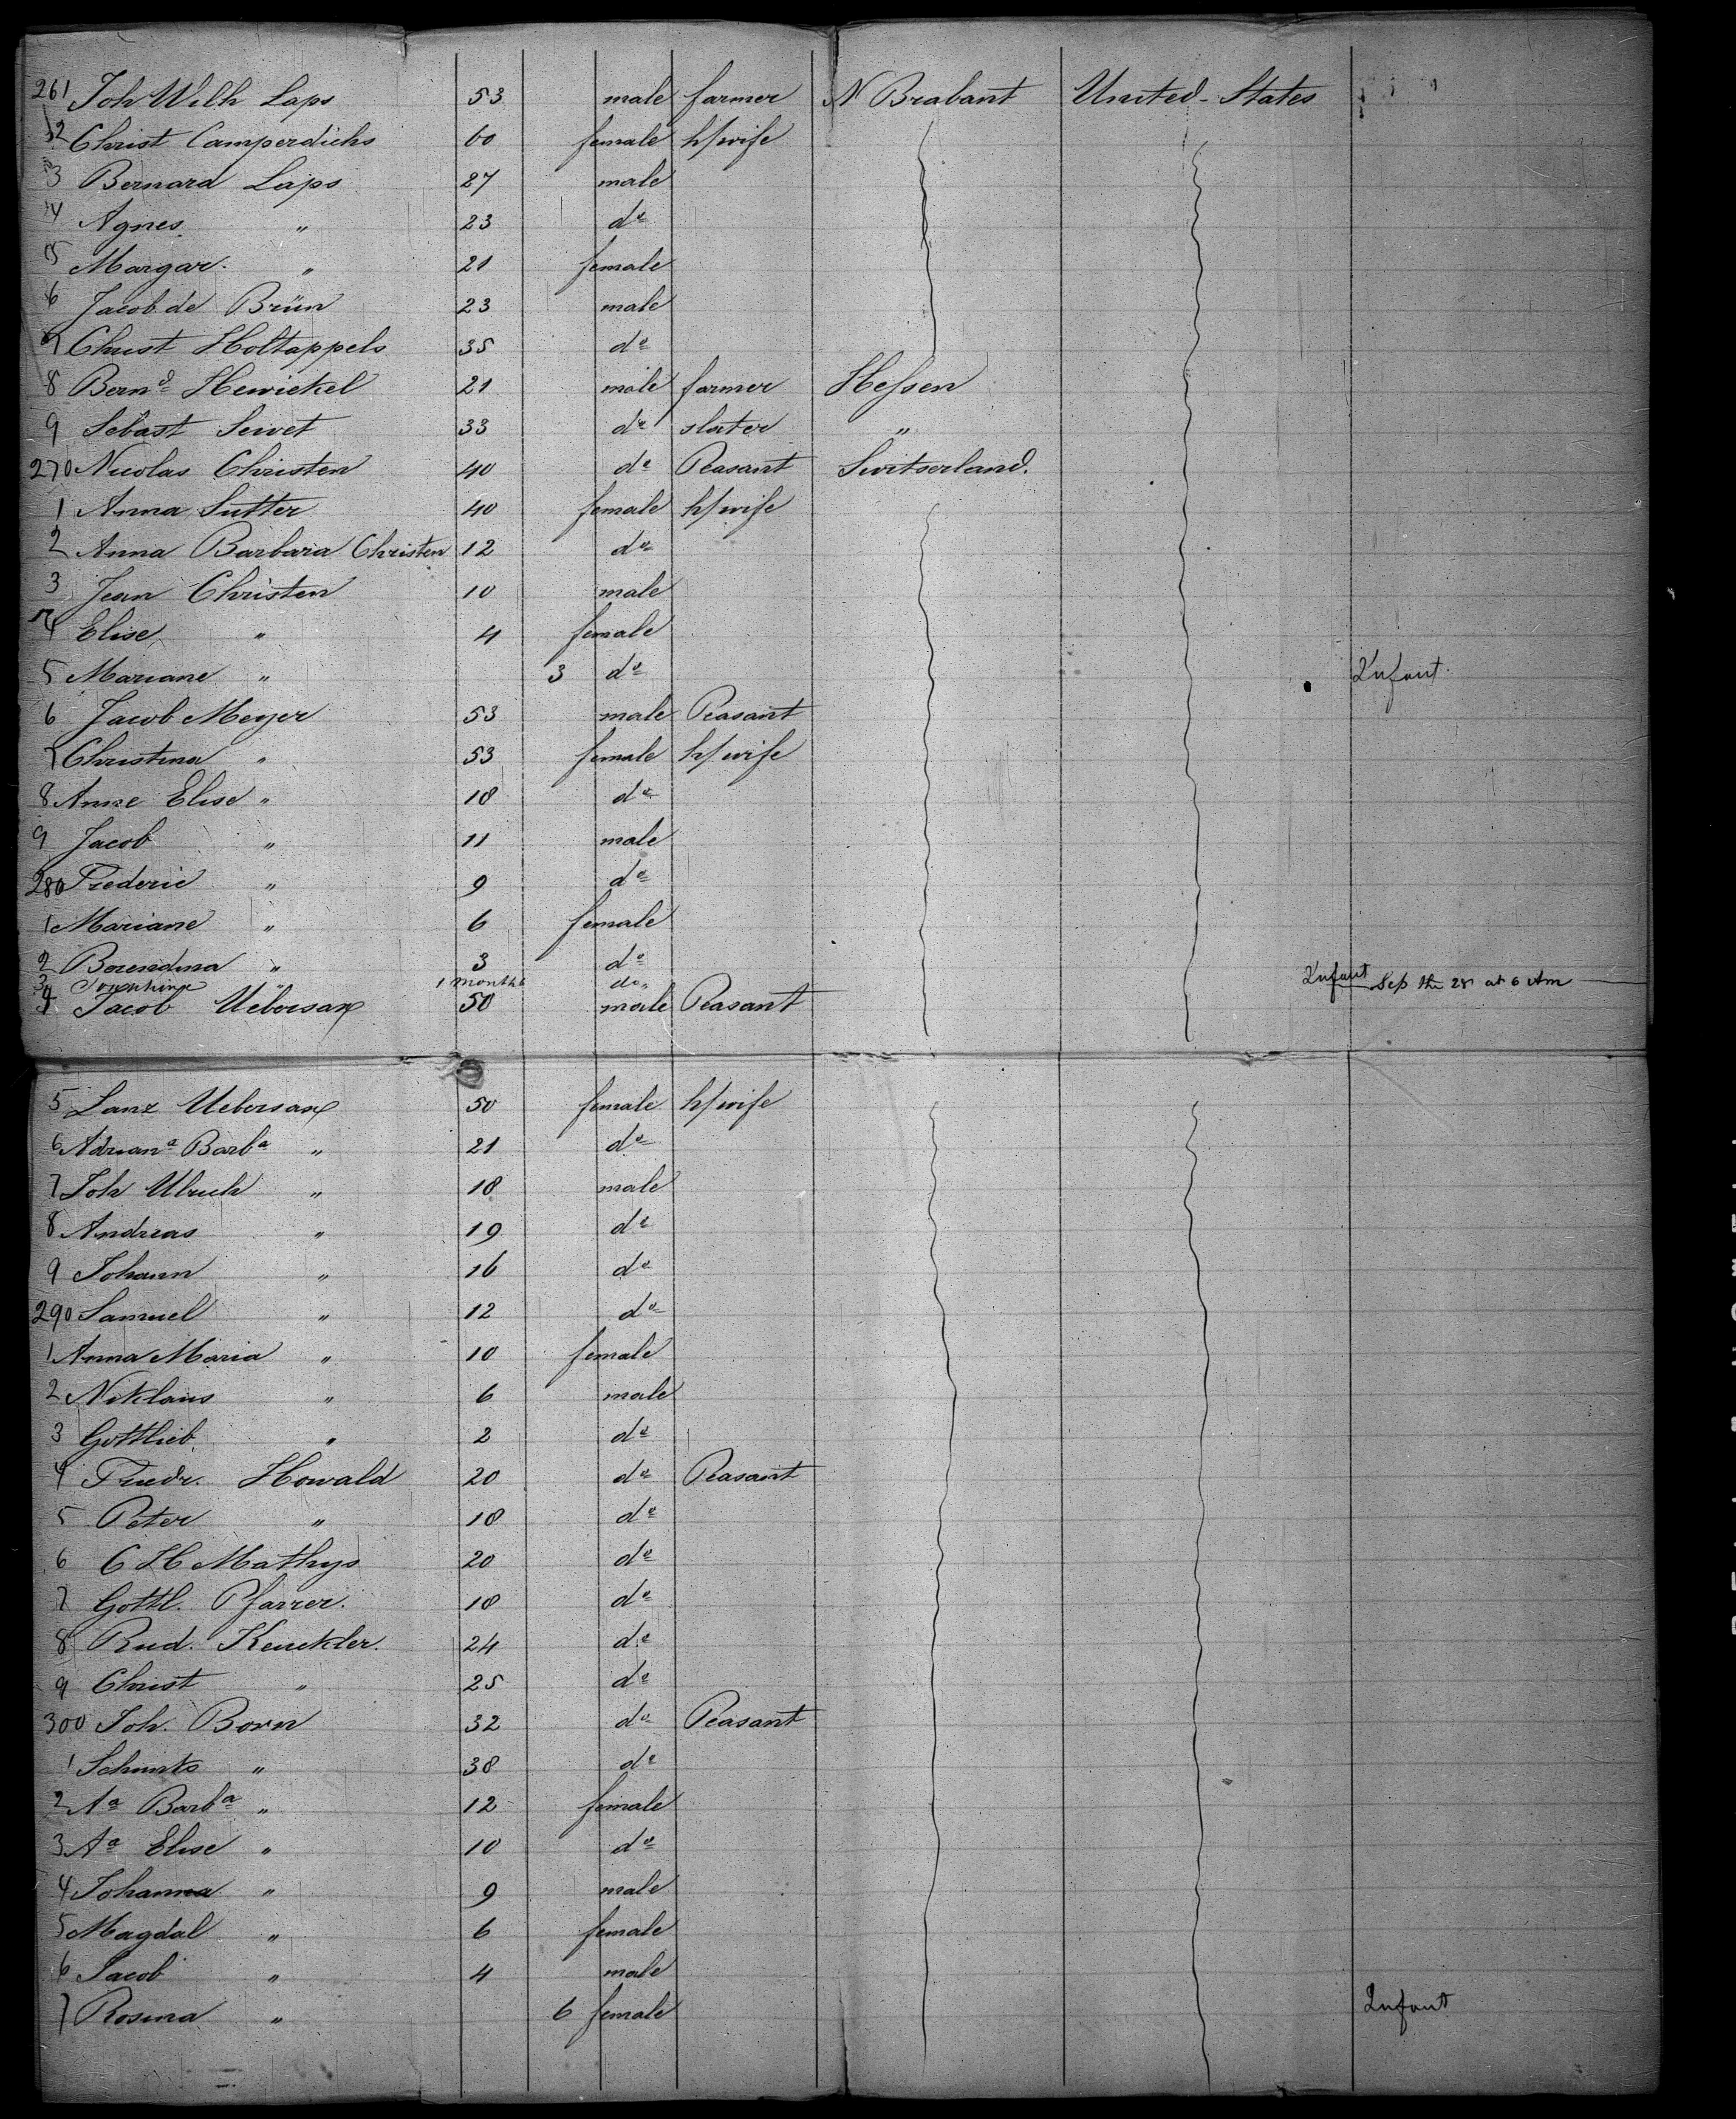 261 Joh Wilh Laps 53 male farmer N Brabant United States
2 Christ Camperdichs 60 female h/wife
3 Bernard Laps 27 male
4 Agnes " 23 do
5 Margar. " 21 female
6 Jacob de Brün 23 male
7 Christ Holtappels 35 do
8 Bernd Hewickel 21 male farmer Hessen
9 Sebast Seivet 33 do slater "
270 Nicolas Christen 40 do Peasant Switserland.
1 Anna Sutter 40 female h/wife
2 Anna Barbara Christen 12 do
3 Jean Christen 10 male
4 Elise " 4 female
5 Mariane " 3 do Infant
6 Jacob Meyer 53 male Peasant
7 Christina " 53 female h/wife
8 Anne Elise " 18 do
9 Jacob " 11 male
280 Frederic " 9 do
1 Mariane " 6 female
2 Berendina " 3 do
3 Josephine " 1 month do Infant Sep the 28 at 6 Am
4 Jacob Uebersax 50 male Peasant
5 Lanz Uebersax 50 female h/wife
6 Adriana Barba " 21 do
7 Joh Ulrich " 18 male
8 Andreas " 19 do
9 Johann " 16 do
290 Samuel " 12 do
1 Anna Maria " 10 female
2 Niklaus " 6 male
3 Gottlieb " 2 do
4 Friedr. Howald 20 do Peasant
5 Peter " 18 do
6 C H Mathys 20 do
7 Gottl. Pfarrer. 18 do
8 Rud. Kenckler. 24 do
9 Christ " 25 do
300 Joh. Born 32 do Peasant
1 Schunts " 38 do
2 Aa Barba " 12 female
3 Aa Elise " 10 do
4 Johanna " 9 male
5 Magdal " 6 female
6 Jacob " 4 male
7 Rosina " 6 female Infant